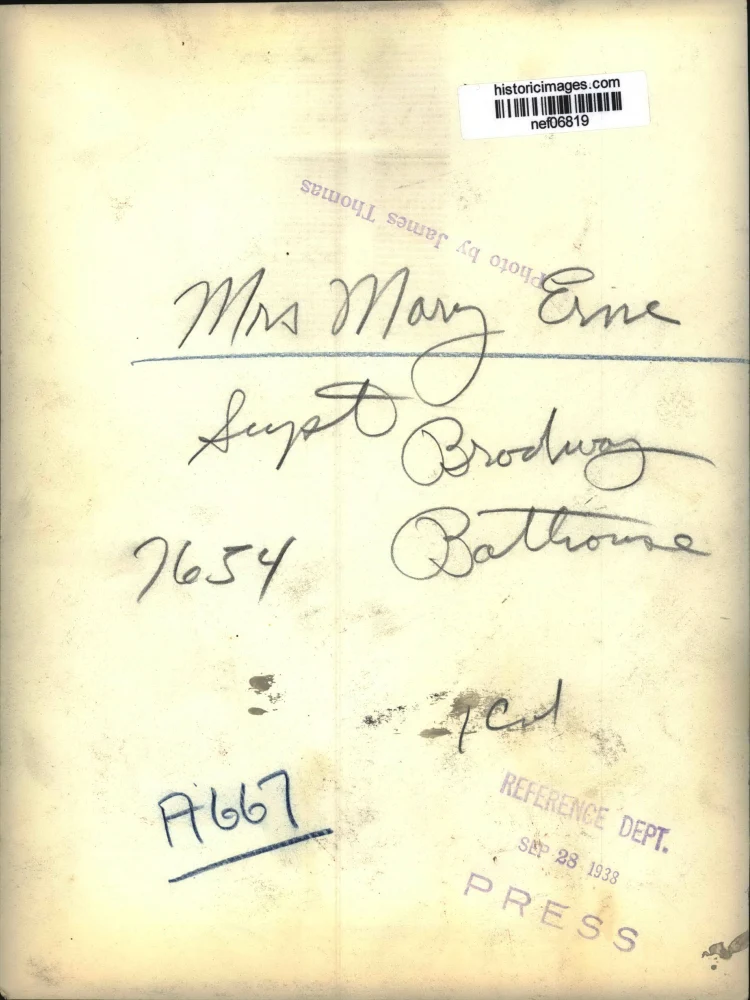 historicimages.com
nef06819
Photo by James Thomas
Mrs Mary Erne
Supt Brodway
7654 Bathouse
1 Col
A667
REFERENCE DEPT.
SEP 28 1938
PRESS